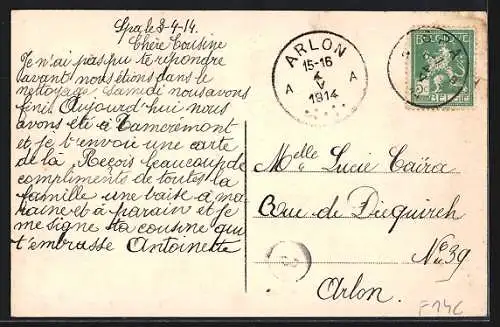 Spa le 8-4-14.
Chère Cousine
Je n'ai pas pu te répondre
avant nous étions dans le
nettoyage Samdi nous avons
fini Aujourd'hui nous
avons été à Tancrémont
et je t'envoie une carte
de là. Reçois beaucoup de
compliments de toutes la
famille une baise à ma
raine et à parain et je
me signe ta cousine qui
t'embrasse Antoinette
ARLON
15-16
V
1914
A A
BELGIQUE
5c
BELGIË
Melle Lucie Caëra
Rue de Diequirch
No 39
Arlon.
F14C